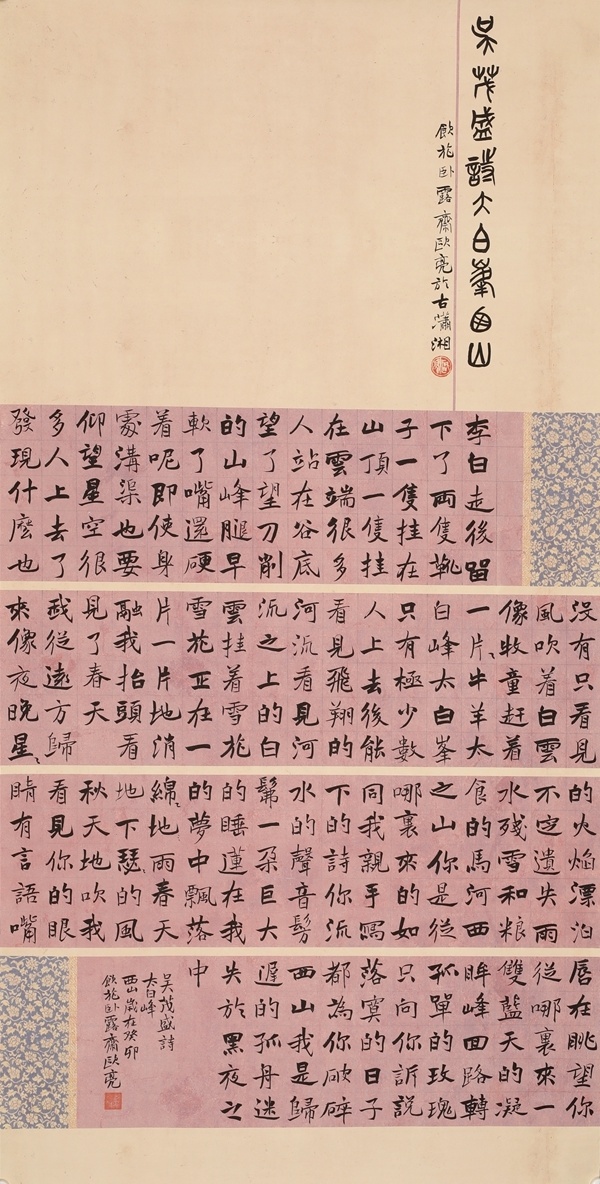 吴茂盛詩大白峯西山
飲於卧露齋歐亮於古瀟湘
李白走後留
下了兩隻靴
子一隻挂在
山頂一隻挂
在雲端很多
人站在谷底
望了望刀削
的山峰腿早
軟了嘴還硬
着呢即使身
處溝渠也要
仰望星空很
多人上去了
發現什麽也
没有只看見
風吹着白雲
像牧童赶着
一片〻牛羊太
白峰太白峯
只有極少數
人上去後能
看見飛翔的
河流看見河
流之上的白
雲挂着雪花
雪花正在一
片一片地消
融我抬頭看
見了春天
我從遠方歸
來像夜晚星〻
的火焰漂泊
不定遺失雨
水殘雪和粮
食的馬河西
之山你是從
哪裏來的如
同我親手寫
下的詩你流
水的聲音髣
髴一朵巨大
的睡蓮在我
的夢中飄落
綿〻地雨春天
地下瑟〻的風
秋天地吹我
看見你的眼
睛有言語嘴
唇在眺望你
從哪裏來一
雙藍天的凝
眸峰回路轉
孤單的玫瑰
只向你訴說
落寞的日子
都為你破碎
西山我是歸
遲的孤舟迷
失於黑夜之
中
吴茂盛詩
太白峰
西山歲在癸卯
飲於卧露齋歐亮